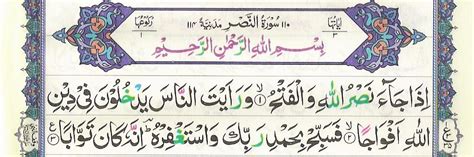 اٰیَاتُهَا ٣
١١٠ سُوْرَةُ النَّصْرِ مَدَنِیَّةٌ ١١٤
رُكُوْعُهَا ١
بِسْمِ اللّٰهِ الرَّحْمٰنِ الرَّحِیْمِ
اِذَا جَآءَ نَصْرُ اللّٰهِ وَالْفَتْحُ ۙ﴿١﴾ وَرَاَیْتَ النَّاسَ یَدْخُلُوْنَ فِیْ دِیْنِ
اللّٰهِ اَفْوَاجًا ۙ﴿٢﴾ فَسَبِّحْ بِحَمْدِ رَبِّكَ وَاسْتَغْفِرْهُ ؕ اِنَّهٗ كَانَ تَوَّابًا ﴿٣﴾